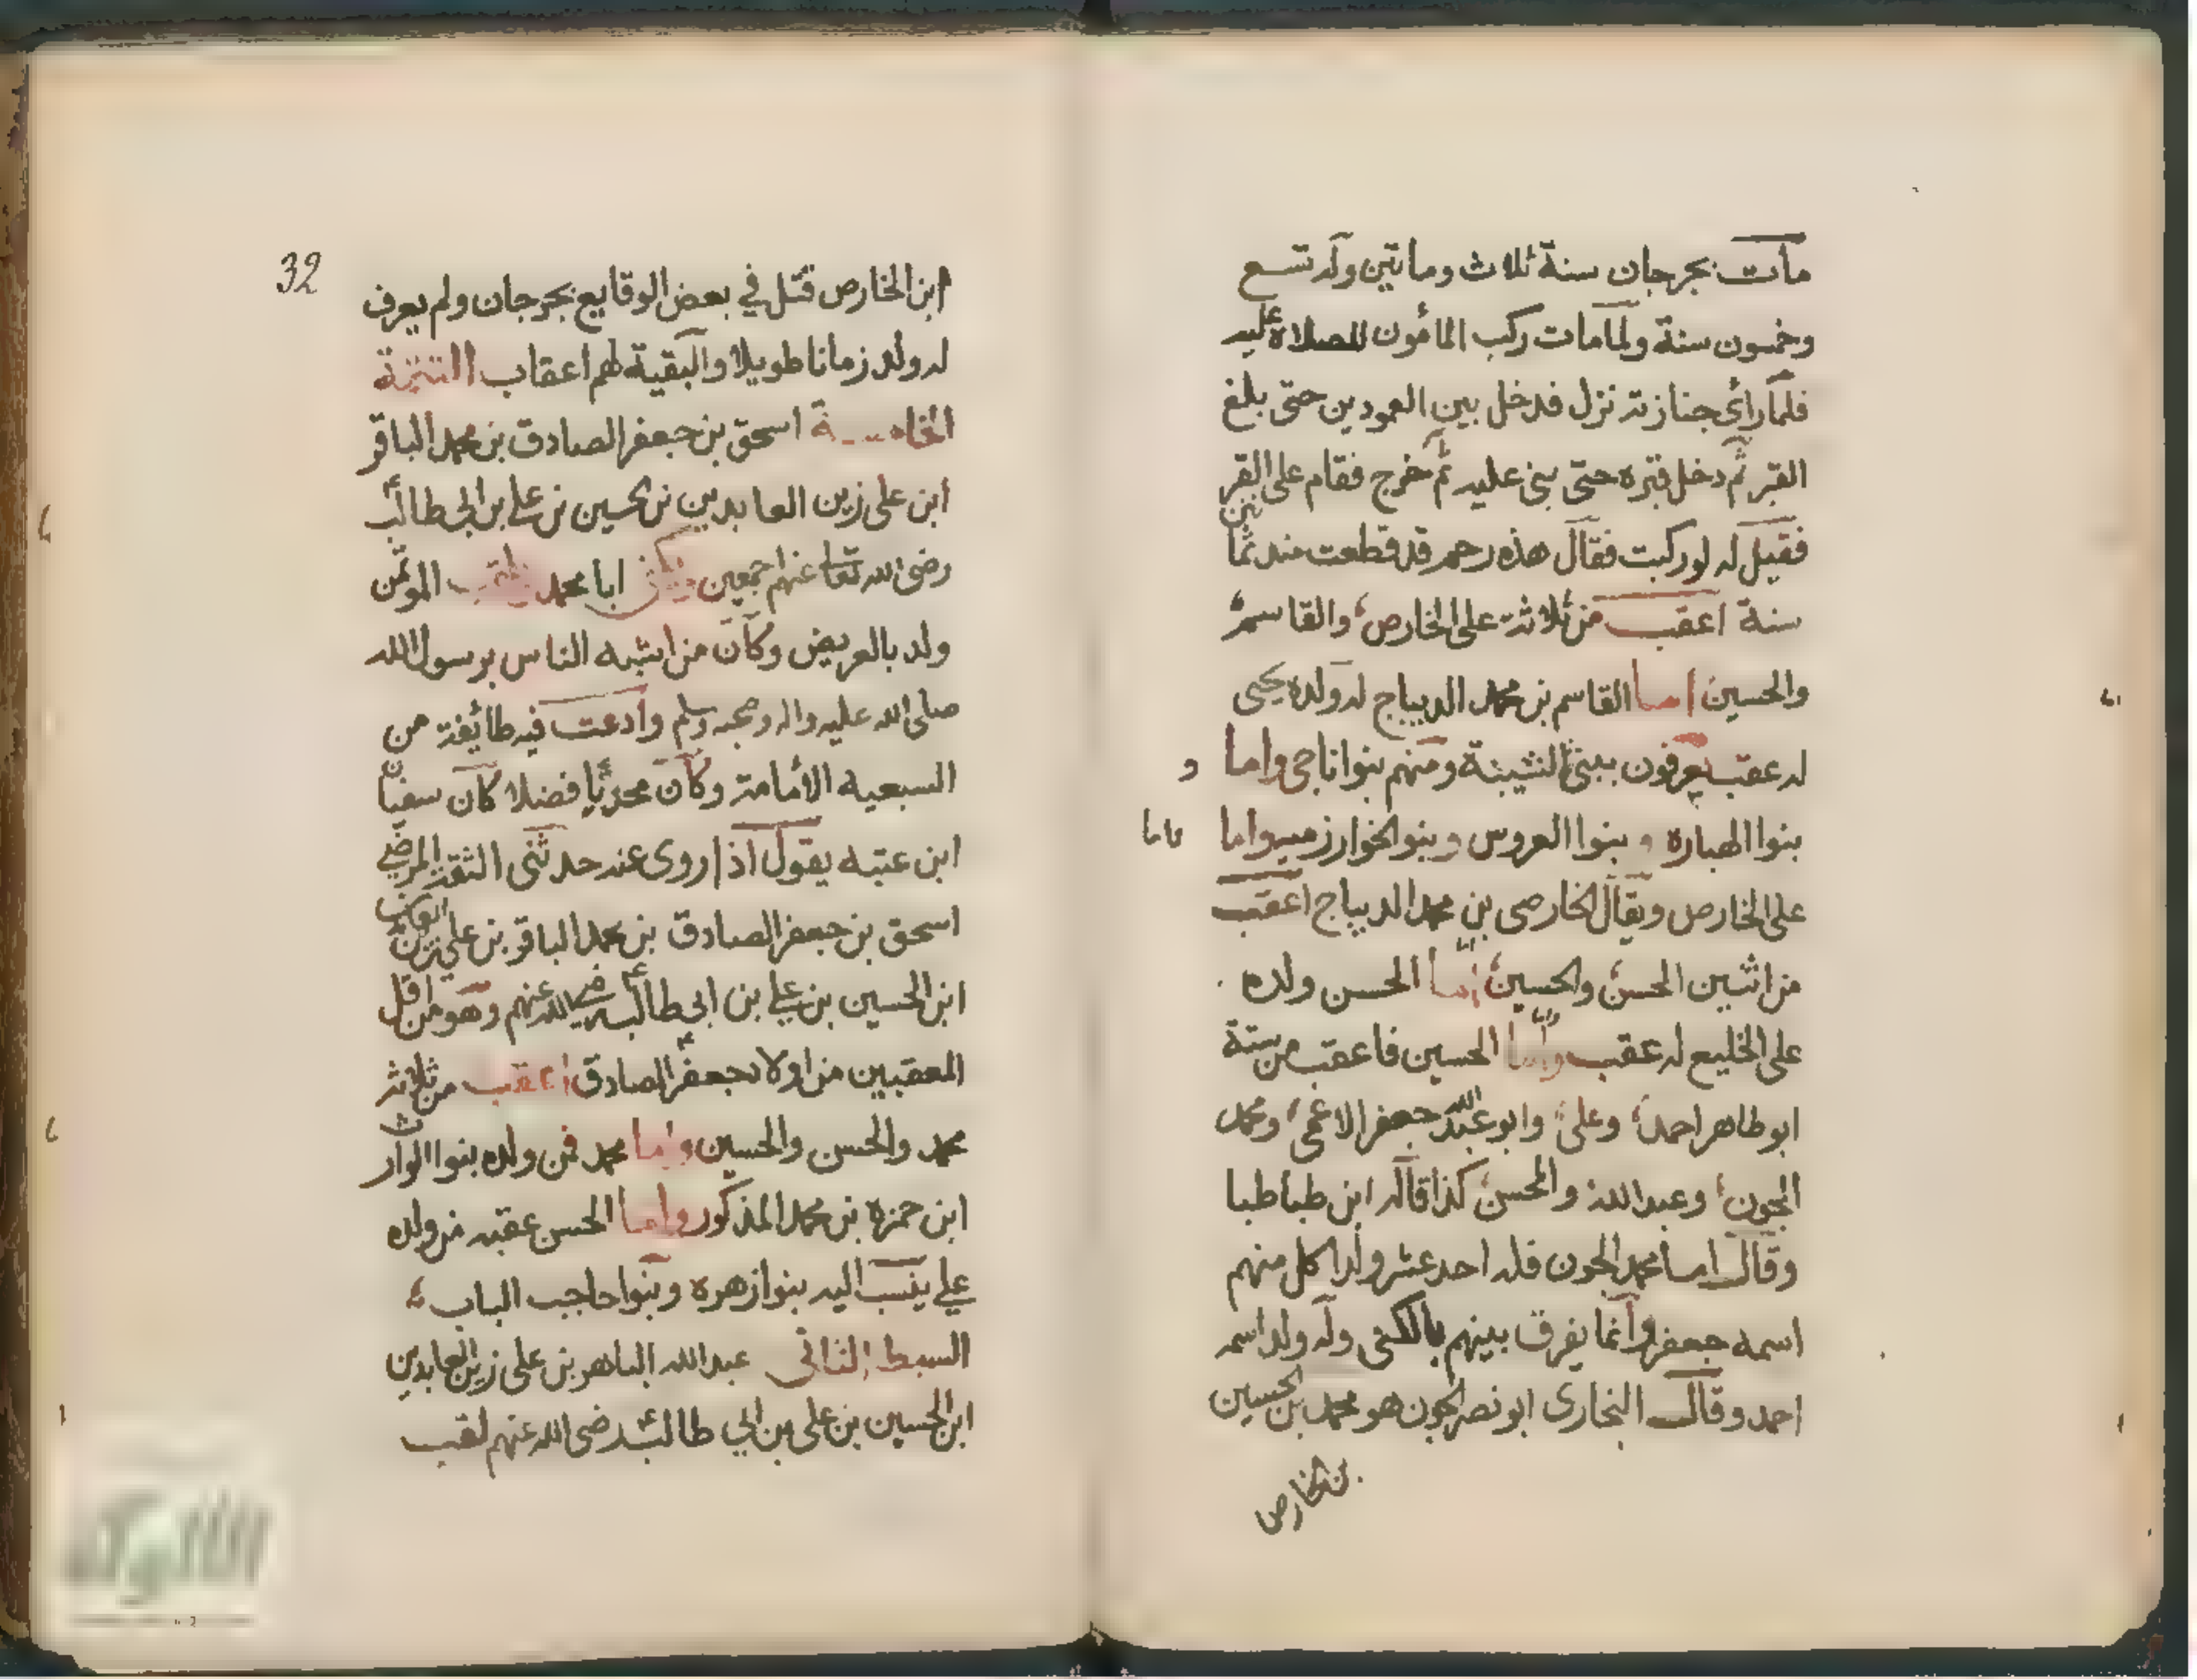 مات بجرجان سنة ثلاث وماتين وله تسع
وخمسون سنة ولما مات ركب المأمون للصلاة عليه
فلما رأى جنازته نزل فدخل بين العمودين حتى بلغ
القبر ثم دخل قبره حتى بنى عليه ثم خرج فقام على القبر
فقيل له لو ركبت فقال هذه رحم قد قطعت منذ
سنة اعقب من ثلاثة على الخارص والقاسم
والحسين اما القاسم بن محمد الديباج له ولده يحيى
له عقب يعرفون ببنى الشبيبة ومنهم بنوا ناجى واما
بنوا الهباره و بنوا العروس وبنو الخوارزميه واما
على الخارص ويقال الخارصى بن محمد الديباج اعقب
من اثنين الحسن والحسين اما الحسن ولده
على الخليع له عقب واما الحسين فاعقب من ستة
ابو طاهر احمد وعلى وابو عبد الله جعفر الاعمى ومحمد
الجون وعبد الله والمحسن كذا قاله ابن طباطبا
وقال اما محمد الجون فله احد عشر ولدا كل منهم
اسمه جعفر وانما يفرق بينهم بالكنى وله ولد اسمه
احمد وقال البخارى ابو نصر الجون هو محمد بن الحسين
بن الخارص
32
ابن الخارص قتل في بعض الوقايع بجرجان ولم يعرف
له ولد زمانا طويلا والبقية لهم اعقاب التتمة
الخامسة اسحق بن جعفر الصادق بن محمد الباقر
ابن على زين العابدين بن الحسين بن على بن ابى طالب
رضى الله تعا عنهم اجمعين يكنى ابا محمد يلقب المؤتمن
ولد بالعريض وكان من اشبه الناس برسول الله
صلى الله عليه واله وصحبه وسلم وادعت فيه طائفة من
السبعيه الأمامة وكان محدثا فضلا كان سفيان
ابن عتبه يقول اذا روى عنه حدثنى الثقة المرضي
اسحق بن جعفر الصادق بن محمد الباقر بن على زين العابدين
ابن الحسين بن على بن ابى طالب رضي الله عنهم وهو من اقل
المعقبين من اولاد جعفر الصادق اعقب من ثلاثة
محمد والحسن والحسين واما محمد فمن ولده بنوا الوارث
ابن حمزه بن محمد المذكور واما الحسن عقبه من ولده
علي ينسب اليه بنوا زهره وبنوا حاجب الباب
السبط الثانى عبد الله الباهر بن على زين العابدين
ابن الحسين بن على بن ابي طالب رضى الله عنهم لقب